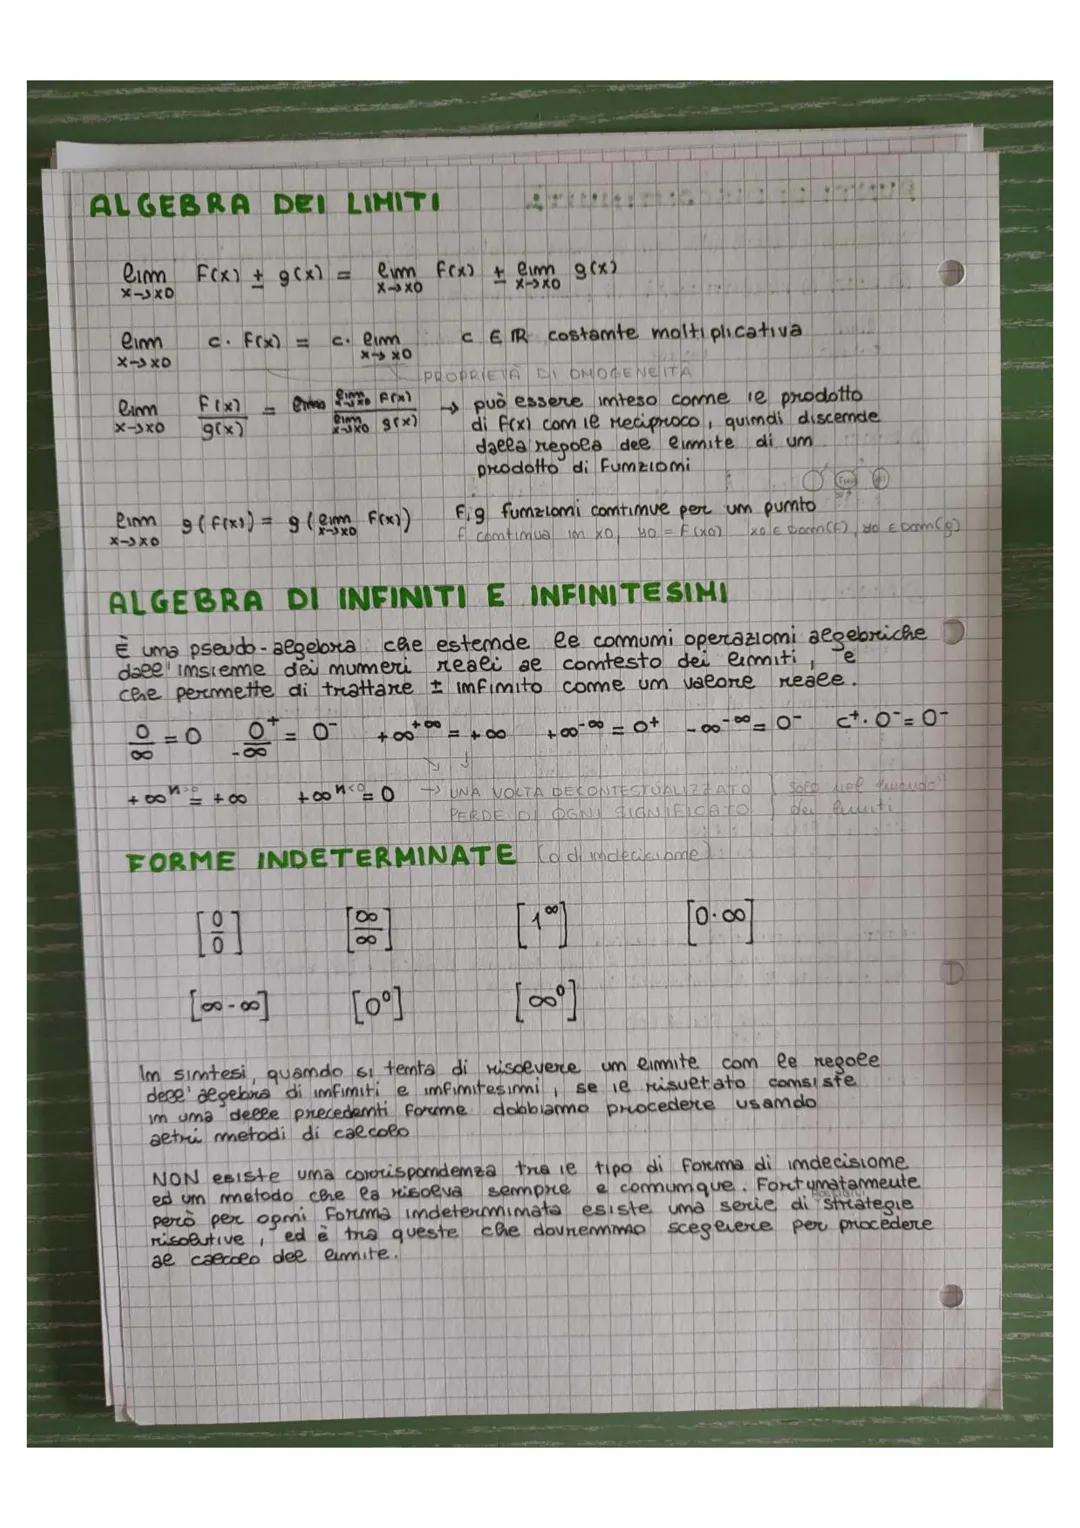 ALGEBRA DEI LIMITI
lim x→x0 f(x) ± g(x) = lim x→x0 f(x) ± lim x→x0 g(x)
lim x→x0 c · f(x) = c · lim x→x0 c ∈ ℝ costante moltiplicativa
PROPRIETÀ DI OMOGENEITÀ
lim x→x0 f(x)/g(x) = lim x→x0 f(x) / lim x→x0 g(x) → può essere inteso come il prodotto
di f(x) con il reciproco, quindi discende
dalla regola del limite di un
prodotto di funzioni
lim x→x0 g(f(x)) = g(lim x→x0 f(x)) f,g funzioni continue per un punto
f continua in x0, y0 = f(x0) x0 ∈ Dom(f), y0 ∈ Dom(g)
ALGEBRA DI INFINITI E INFINITESIMI
È una pseudo-algebra che estende le comuni operazioni algebriche
dall'insieme dei numeri reali al contesto dei limiti, e
che permette di trattare ± infinito come un valore reale.
0/∞ = 0 0⁺/-∞ = 0⁻ +∞^+∞ = +∞ +∞^-∞ = 0⁺ -∞^-∞ = 0⁻ c⁺·0⁻ = 0⁻
+∞^n>0 = +∞ +∞^n<0 = 0 → UNA VOLTA DECONTESTUALIZZATO solo nel mondo
PERDE DI OGNI SIGNIFICATO dei limiti
FORME INDETERMINATE (o di indecisione)
[0/0] [∞/∞] [1^∞] [0·∞]
[∞-∞] [0⁰] [∞⁰]
In sintesi, quando si tenta di risolvere un limite con le regole
dell'algebra di infiniti e infinitesimi, se il risultato consiste
in una delle precedenti forme dobbiamo procedere usando
altri metodi di calcolo
NON esiste una corrispondenza tra il tipo di forma di indecisione
ed un metodo che la risolva sempre e comunque. Fortunatamente
però per ogni forma indeterminata esiste una serie di strategie
risolutive, ed è tra queste che dovremmo scegliere per procedere
al calcolo del limite.